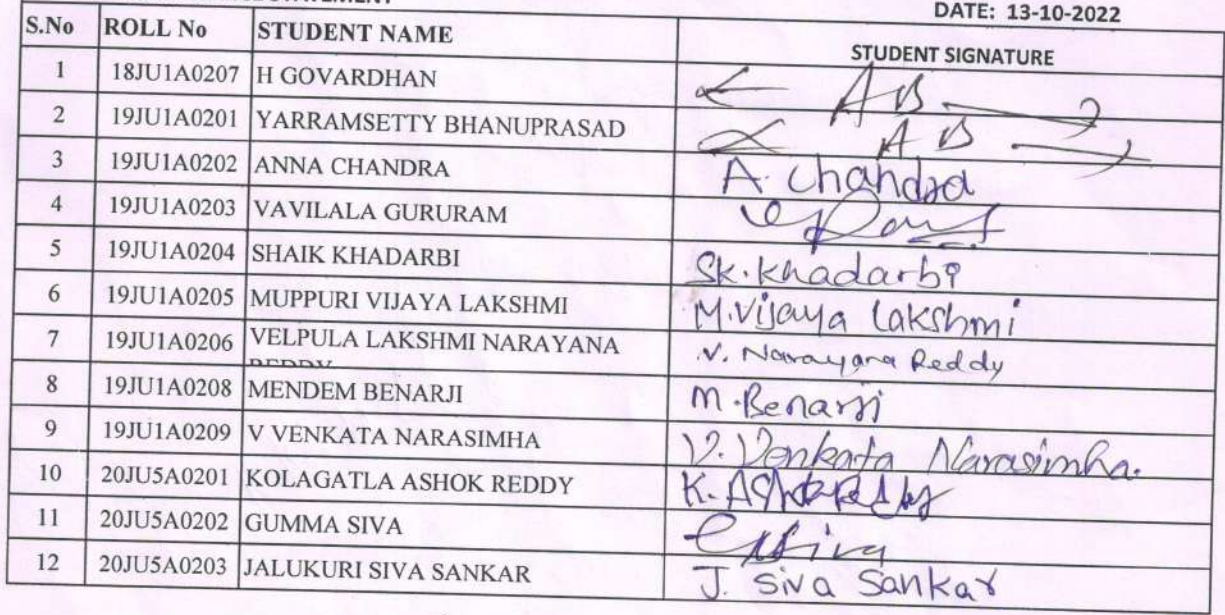 DATE: 13-10-2022
S.No ROLL No STUDENT NAME STUDENT SIGNATURE
1 18JU1A0207 H GOVARDHAN AB
2 19JU1A0201 YARRAMSETTY BHANUPRASAD AB
3 19JU1A0202 ANNA CHANDRA A. Chandra
4 19JU1A0203 VAVILALA GURURAM
5 19JU1A0204 SHAIK KHADARBI SK. Khadarbi
6 19JU1A0205 MUPPURI VIJAYA LAKSHMI M. Vijaya Lakshmi
7 19JU1A0206 VELPULA LAKSHMI NARAYANA V. Narayana Reddy
REDDY
8 19JU1A0208 MENDEM BENARJI M. Benarji
9 19JU1A0209 V VENKATA NARASIMHA V. Venkata Narasimha.
10 20JU5A0201 KOLAGATLA ASHOK REDDY K. Ashok Reddy
11 20JU5A0202 GUMMA SIVA G Siva
12 20JU5A0203 JALUKURI SIVA SANKAR J. Siva Sankar